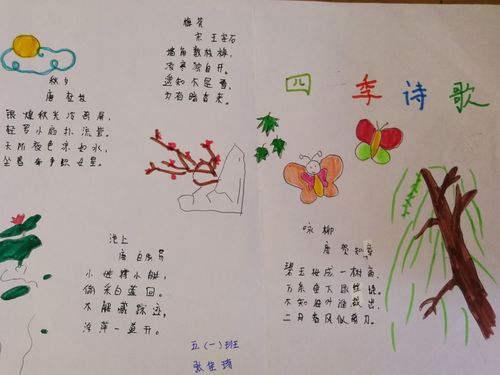 四季诗歌
梅花
宋 王安石
墙角数枝梅，
凌寒独自开。
遥知不是雪，
为有暗香来。
秋夕
唐 杜牧
银烛秋光冷画屏，
轻罗小扇扑流萤。
天阶夜色凉如水，
坐看牵牛织女星。
池上
唐 白居易
小娃撑小艇，
偷采白莲回。
不解藏踪迹，
浮萍一道开。
咏柳
唐 贺知章
碧玉妆成一树高，
万条垂下绿丝绦。
不知细叶谁裁出，
二月春风似剪刀。
五（一）班
张佳